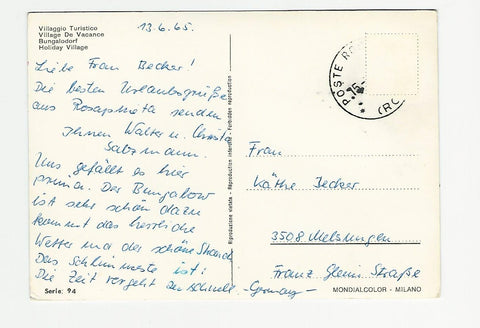 Villaggio Turistico
Village De Vacance
Bungalodorf
Holiday Village
13.6.65.
Liebe Frau Becker!
Die besten Urlaubsgrüße
aus senden
Ihnen Walter u. Christa
Salzmann.
Uns gefällt es hier
prima. Der Bungalow
ist sehr schön dazu
kommt das herrliche
Wetter und der schöne Strand.
Das Schlimmste ist:
Die Zeit vergeht zu schnell
Serie: 94
Riproduzione vietata - Reproduction interdite - Forbidden reproduction
POSTE
Frau
Käthe Becker
3508 Melsungen
Franz Straße
-Germany-
MONDIALCOLOR - MILANO